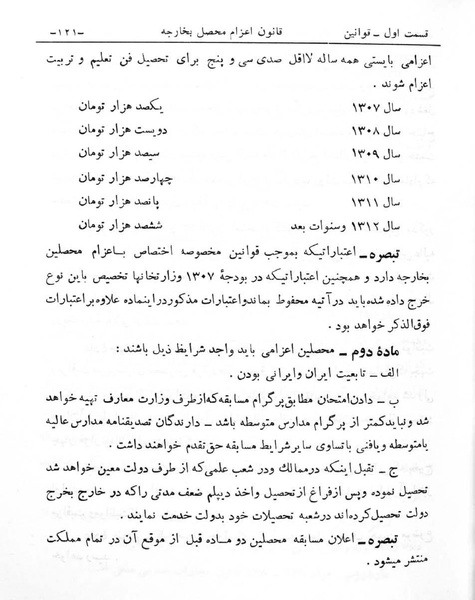 قسمت اول ــ قوانین
قانون اعزام محصل بخارجه
ـ۱۲۱ـ
اعزامی بایستی همه ساله لااقل صدی سی و پنج برای تحصیل فن تعلیم و تربیت
اعزام شوند .
سال ۱۳۰۷ یکصد هزار تومان
سال ۱۳۰۸ دویست هزار تومان
سال ۱۳۰۹ سیصد هزار تومان
سال ۱۳۱۰ چهارصد هزار تومان
سال ۱۳۱۱ پانصد هزار تومان
سال ۱۳۱۲ وسنوات بعد ششصد هزار تومان
تبصره ــ اعتباراتیکه بموجب قوانین مخصوصه اختصاص بـاعزام محصلین
بخارجه دارد و همچنین اعتباراتیکه در بودجهٔ ۱۳۰۷ وزارتخانها تخصیص باین نوع
خرج داده شده باید در آتیه محفوظ بماند واعتبارات مذکور در این ماده علاوه بر اعتبارات
فوق الذکر خواهد بود .
مادهٔ دوم ــ محصلین اعزامی باید واجد شرایط ذیل باشند :
الف ــ تابعیت ایران وایرانی بودن .
ب ــ دادن امتحان مطابق پرگرام مسابقه که از طرف وزارت معارف تهیه خواهد
شد و نباید کمتر از پرگرام مدارس متوسطه باشد ــ دارندگان تصدیقنامه مدارس عالیه
یامتوسطه ویافنی با تساوی سایر شرایط مسابقه حق تقدم خواهند داشت .
ج ــ تقبل اینکه در ممالك ودر شعب علمی که از طرف دولت معین خواهد شد
تحصیل نموده وپس از فراغ از تحصیل واخذ دیپلم ضعف مدتی را که در خارج بخرج
دولت تحصیل کرده اند در شعبه تحصیلات خود بدولت خدمت نمایند .
تبصره ــ اعلان مسابقه محصلین دو مـاده قبل از موقع آن در تمام مملکت
منتشر میشود .